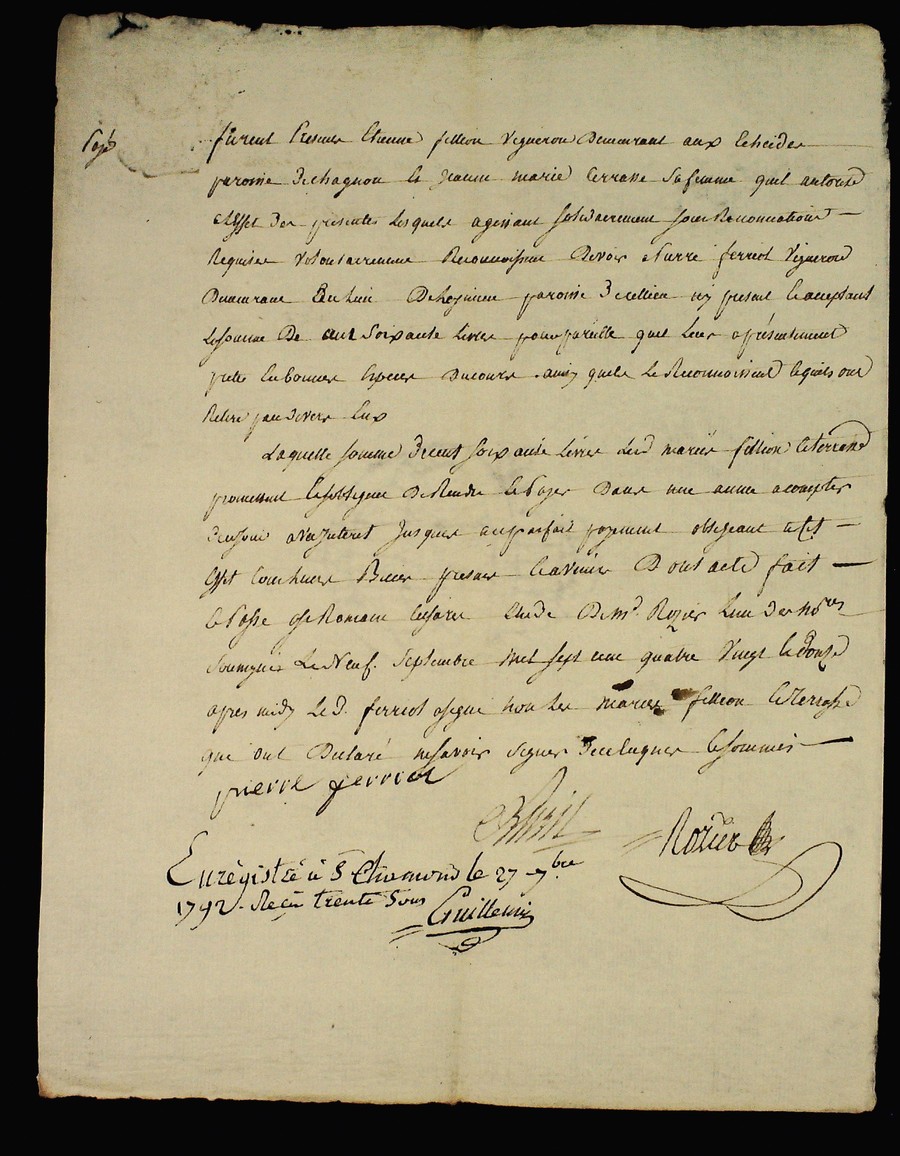 furent Presents Etienne fillion Vigneron Demeurant aux
paroisse de chagnon & Jeanne marie terrasse sa femme quil autorise
a Leffet des presentes lesquels agissant solidairement sous Renonciations
Requises volontairement Reconnoissent Devoir a Pierre ferriot Vigneron
Demeurant au paroisse de cellieu icy present & acceptant
La somme De cent soixante Livres pour pareille quil leur a présentement
preté en bonnes especes du cours ainsy quils Le Reconnoissent & quils ont
Retiré pardevers Eux
Laquelle somme de cent soixante Livres lesd mariés fillion & terrasse
promettent & soblligent De Rendre & Payer Dans une année a compter
de ce jour avec Interet Jusques au parfait payement obligeant a cet
effet tous leurs Biens presents & avenirs Dont acte fait
& Passé a St Romain en Jarez Etude De Me. Rozier Lun des nores
soussignés Le Neuf. septembre mil sept cent quatre vingt & Douze
apres midy Le d. ferriot a signé non Les mariés fillion & terrasse
qui ont Déclaré ne savoir signer de ce Enquis & sommés
pierre ferriot
Rozier
Enrégistré à St Chamond le 27 7bre
1792. Reçu trente sous
Guillemin